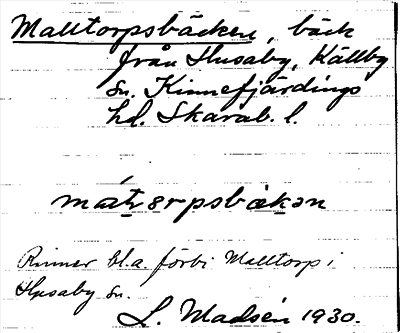 Malltorpsbäcken, bäck
från Husaby, Källby
sn. Kinnefjärdings
hd. Skarab. l.
Rinner bl.a. förbi Malltorp i
Husaby sn.
L. Madsén 1930.